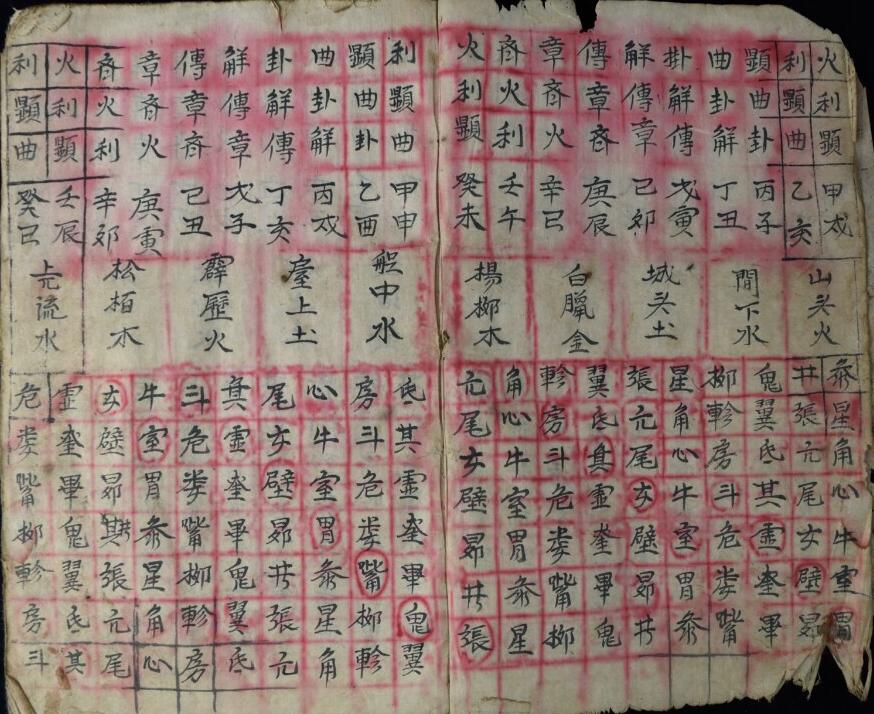 火利顯甲戌
利顯曲乙亥
顯曲卦丙子
曲卦解丁丑
掛解傳戊寅
解傳章己卯
傳章斉庚辰
章斉火辛巳
斉火利壬午
火利顯癸未
山头火
間下水
城头土
白臘金
楊柳木
参星角心牛室胃
井張亢尾女壁昴
鬼翼氐其虚奎畢
柳軫房斗危娄嘴
星角心牛室胃参
張亢尾女壁昴井
翼氐其虚奎畢鬼
軫房斗危娄嘴柳
角心牛室胃参星
亢尾女壁昴井張
利顯曲甲申
顯曲卦乙酉
曲卦解丙戌
卦解傳丁亥
解傳章戊子
傳章斉己丑
章斉火庚寅
斉火利辛卯
火利顯壬辰
利顯曲癸巳
船中水
臺上土
霹靂火
松栢木
流水
氐其虚奎畢鬼翼
房斗危娄嘴柳軫
心牛室胃参星角
尾女壁昴井張亢
其虚奎畢鬼翼氐
斗危娄嘴柳軫房
牛室胃参星角心
女壁昴井張亢尾
虚奎畢鬼翼氐其
危娄嘴柳軫房斗